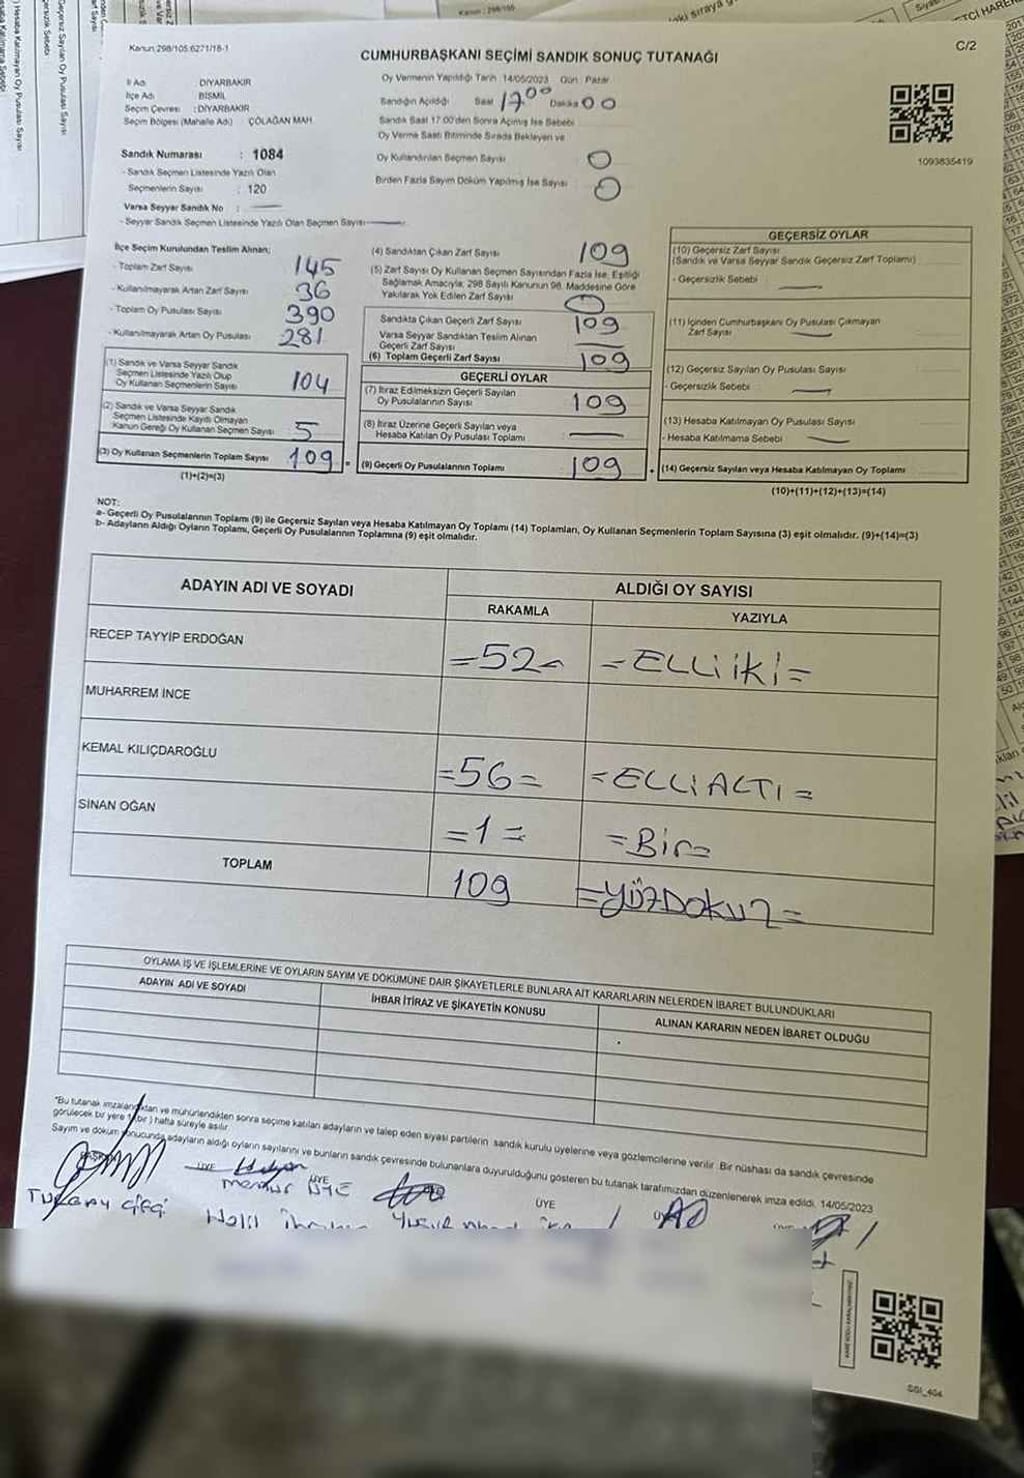 Kanun 298/105:6271/18-1
CUMHURBAŞKANI SEÇİMİ SANDIK SONUÇ TUTANAĞI
C/2
İl Adı DİYARBAKIR
İlçe Adı BİSMİL
Seçim Çevresi : DİYARBAKIR
Seçim Bölgesi (Mahalle Adı) ÇÖLAĞAN MAH.
Oy Vermenin Yapıldığı Tarih 14/05/2023 Gün : Pazar
Sandığın Açıldığı Saat 17 00 Dakika 00
Sandık Saat 17:00'den Sonra Açılmış İse Sebebi
Oy Verme Saati Bitiminde Sırada Bekleyen ve
Oy Kullandırılan Seçmen Sayısı 0
Birden Fazla Sayım Döküm Yapılmış İse Sayısı 0
1093835419
Sandık Numarası : 1084
- Sandık Seçmen Listesinde Yazılı Olan
Seçmenlerin Sayısı : 120
Varsa Seyyar Sandık No :
- Seyyar Sandık Seçmen Listesinde Yazılı Olan Seçmen Sayısı
İlçe Seçim Kurulundan Teslim Alınan;
- Toplam Zarf Sayısı 145
- Kullanılmayarak Artan Zarf Sayısı 36
- Toplam Oy Pusulası Sayısı 390
- Kullanılmayarak Artan Oy Pusulası 281
(1) Sandık ve Varsa Seyyar Sandık
Seçmen Listesinde Yazılı Olup
Oy Kullanan Seçmenlerin Sayısı 104
(2) Sandık ve Varsa Seyyar Sandık
Seçmen Listesinde Kayıtlı Olmayan
Kanun Gereği Oy Kullanan Seçmen Sayısı 5
(3) Oy Kullanan Seçmenlerin Toplam Sayısı 109
(1)+(2)=(3)
(4) Sandıktan Çıkan Zarf Sayısı 109
(5) Zarf Sayısı Oy Kullanan Seçmen Sayısından Fazla İse, Eşitliği
Sağlamak Amacıyla; 298 Sayılı Kanunun 98. Maddesine Göre
Yakılarak Yok Edilen Zarf Sayısı 0
Sandıkta Çıkan Geçerli Zarf Sayısı 109
Varsa Seyyar Sandıktan Teslim Alınan
Geçerli Zarf Sayısı
(6) Toplam Geçerli Zarf Sayısı 109
GEÇERLİ OYLAR
(7) İtiraz Edilmeksizin Geçerli Sayılan
Oy Pusulalarının Sayısı 109
(8) İtiraz Üzerine Geçerli Sayılan veya
Hesaba Katılan Oy Pusulası Toplamı
(9) Geçerli Oy Pusulalarının Toplamı 109
GEÇERSİZ OYLAR
(10) Geçersiz Zarf Sayısı
(Sandık ve Varsa Seyyar Sandık Geçersiz Zarf Toplamı)
- Geçersizlik Sebebi
(11) İçinden Cumhurbaşkanı Oy Pusulası Çıkmayan
Zarf Sayısı
(12) Geçersiz Sayılan Oy Pusulası Sayısı
- Geçersizlik Sebebi
(13) Hesaba Katılmayan Oy Pusulası Sayısı
- Hesaba Katılmama Sebebi
(14) Geçersiz Sayılan veya Hesaba Katılmayan Oy Toplamı
(10)+(11)+(12)+(13)=(14)
NOT:
a- Geçerli Oy Pusulalarının Toplamı (9) ile Geçersiz Sayılan veya Hesaba Katılmayan Oy Toplamı (14) Toplamları, Oy Kullanan Seçmenlerin Toplam Sayısına (3) eşit olmalıdır. (9)+(14)=(3)
b- Adayların Aldığı Oyların Toplamı, Geçerli Oy Pusulalarının Toplamına (9) eşit olmalıdır.
ADAYIN ADI VE SOYADI
ALDIĞI OY SAYISI
RAKAMLA YAZIYLA
RECEP TAYYİP ERDOĞAN =52= =ELLİ İKİ=
MUHARREM İNCE
KEMAL KILIÇDAROĞLU =56= =ELLİ ALTI=
SİNAN OĞAN =1= =Bir=
TOPLAM 109 =YÜZDOKUZ=
OYLAMA İŞ VE İŞLEMLERİNE VE OYLARIN SAYIM VE DÖKÜMÜNE DAİR ŞİKAYETLERLE BUNLARA AİT KARARLARIN NELERDEN İBARET BULUNDUKLARI
ADAYIN ADI VE SOYADI
İHBAR İTİRAZ VE ŞİKAYETİN KONUSU
ALINAN KARARIN NEDEN İBARET OLDUĞU
*Bu tutanak imzalandıktan ve mühürlendikten sonra seçime katılan adayların ve talep eden siyasi partilerin sandık kurulu üyelerine veya gözlemcilerine verilir. Bir nüshası da sandık çevresinde
görülecek bir yere 1 (bir) hafta süreyle asılır.
Sayım ve döküm sonucunda adayların aldığı oyların sayılarını ve bunların sandık çevresinde bulunanlara duyurulduğunu gösteren bu tutanak tarafımızdan düzenlenerek imza edildi. 14/05/2023
BAŞKAN ÜYE ÜYE ÜYE
memur ÜYE
Halil
SSI_404